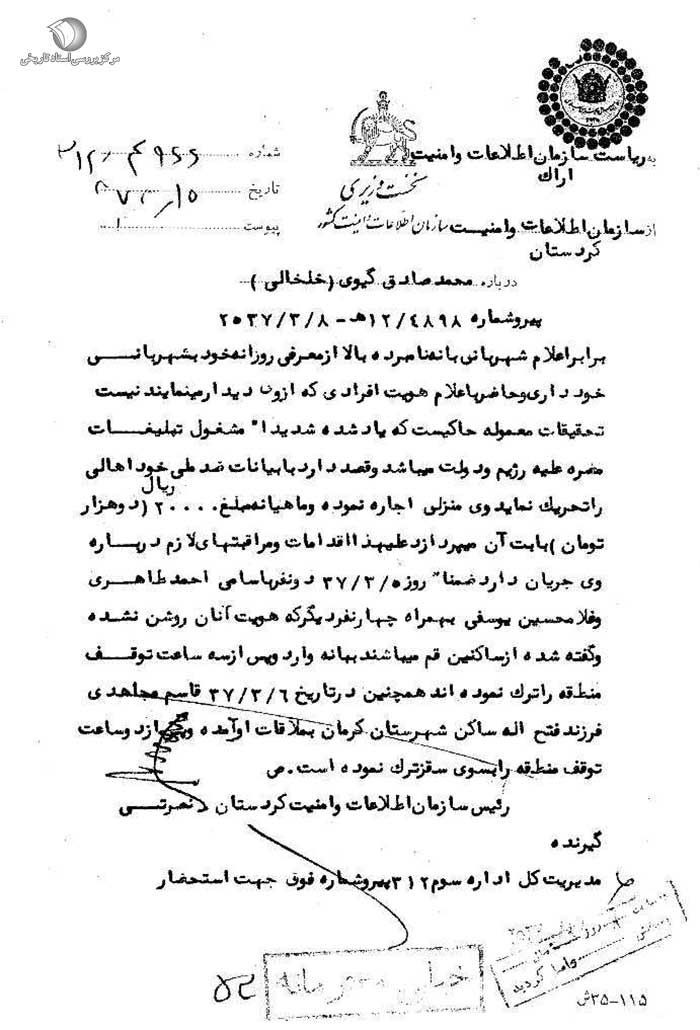 مرکز بررسی اسناد تاریخی
به ریاست سازمان اطلاعات وامنیت
اراك
شماره
تاریخ
پیوست
نخست وزیری
سازمان اطلاعات و امنیت کشور
از سازمان اطلاعات وامنیت
کردستان
درباره محمد صادق گیوی (خلخالی)
پیرو شماره ۱۲/۴۸۹۸هـ - ۲۵۳۷/۳/۸
برابر اعلام شهربانی بانه نامبرده بالا از معرفی روزانه خود بشهربانی
خودداری و حاضر باعلام هویت افرادی که ازوی دیدار مینمایند نیست
تحقیقات معموله حاکیست که یاد شده شدیدا" مشغول تبلیغات
مضره علیه رژیم ودولت میباشد وقصد دارد با بیانات ضد ملی خود اهالی
را تحریك نماید وی منزلی اجاره نموده وماهیانه مبلغ ۲۰۰۰۰ ریال (دوهزار
تومان) بابت آن میپردازد علیهذا اقدامات ومراقبتهای لازم درباره
وی جریان دارد ضمنا" روز ۳۷/۳/۵ دونفر باسامی احمد طاهری
وغلامحسین یوسفی بهمراه چهار نفر دیگر که هویت آنان روشن نشده
وگفته شده از ساکنین قم میباشند ببانه وارد وپس از سه ساعت توقف
منطقه را ترك نموده اند همچنین در تاریخ ۳۷/۳/۶ قاسم مجاهدی
فرزند فتح اله ساکن شهرستان کرمان بملاقات او آمده وپس از دو ساعت
توقف منطقه را بسوی سقز ترك نموده است. ص
رئیس سازمان اطلاعات وامنیت کردستان . نصرتی
گیرنده
مدیریت کل اداره سوم ۳۱۲ پیرو شماره فوق جهت استحضار
خیلی محرمانه
۳۵-۱۱۵ش